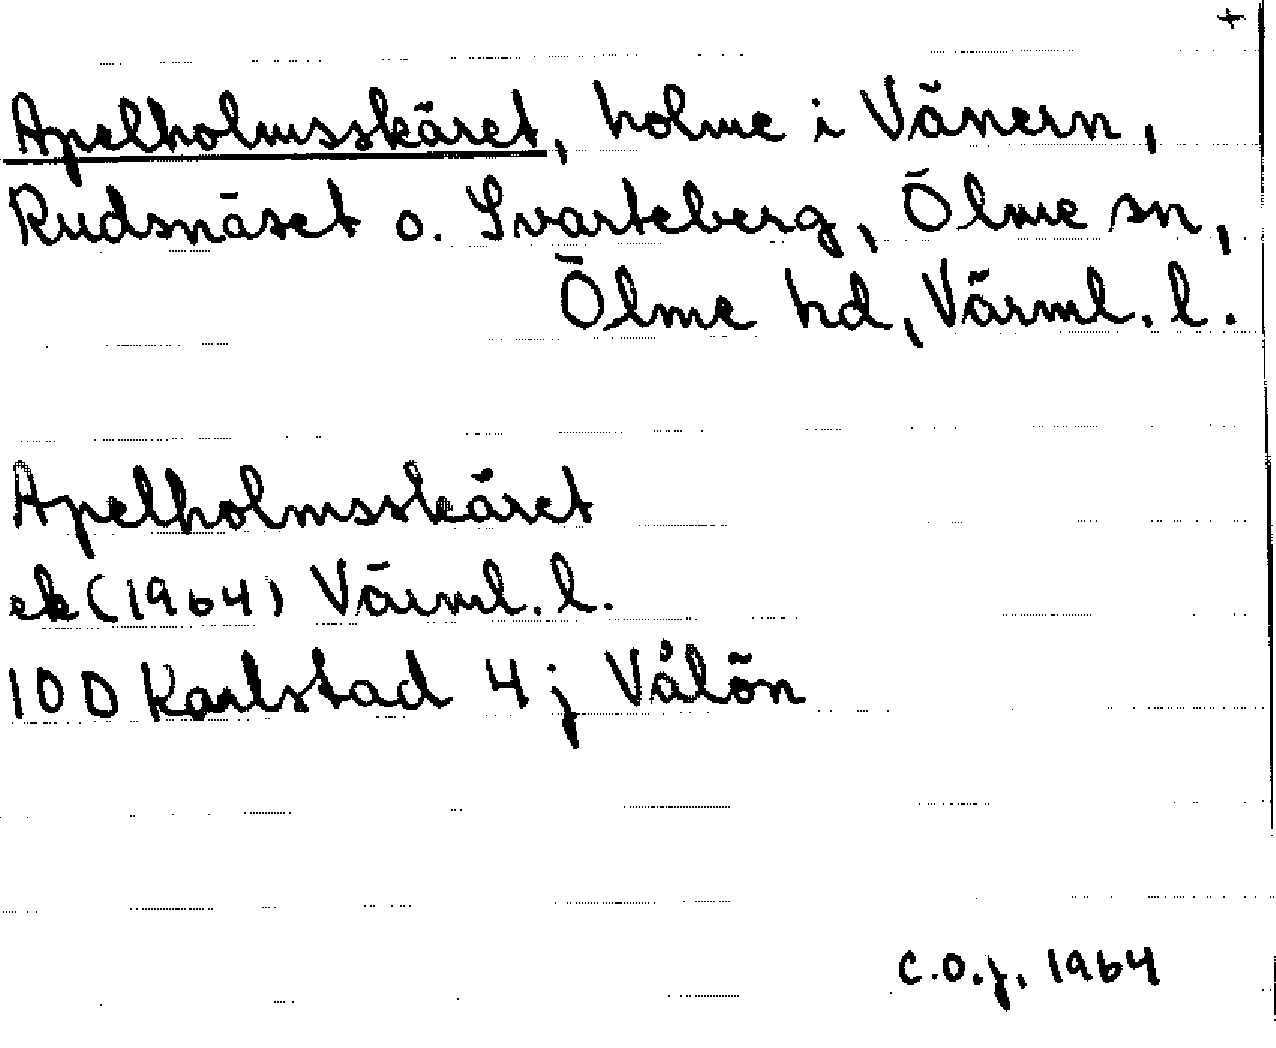 +
Apelholmsskäret, holme i Vänern,
Rudsnäset o. Svarteberg, Ölme sn,
Ölme hd, Värml. l.
Apelholmsskäret
ek (1964) Värml. l.
100 Karlstad 4 j Vålön
C.O.J. 1964